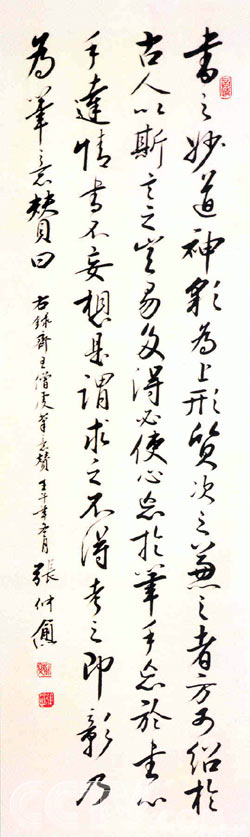 書之妙道神彩為上形質次之兼之者方可紹於
古人以斯言之豈易多得必使心忘於筆手忘於書心
手達情書不妄想是謂求之不得考之即彰乃
為筆意贊曰
右錄齊王僧虔筆意贊 壬午年 月 張仲